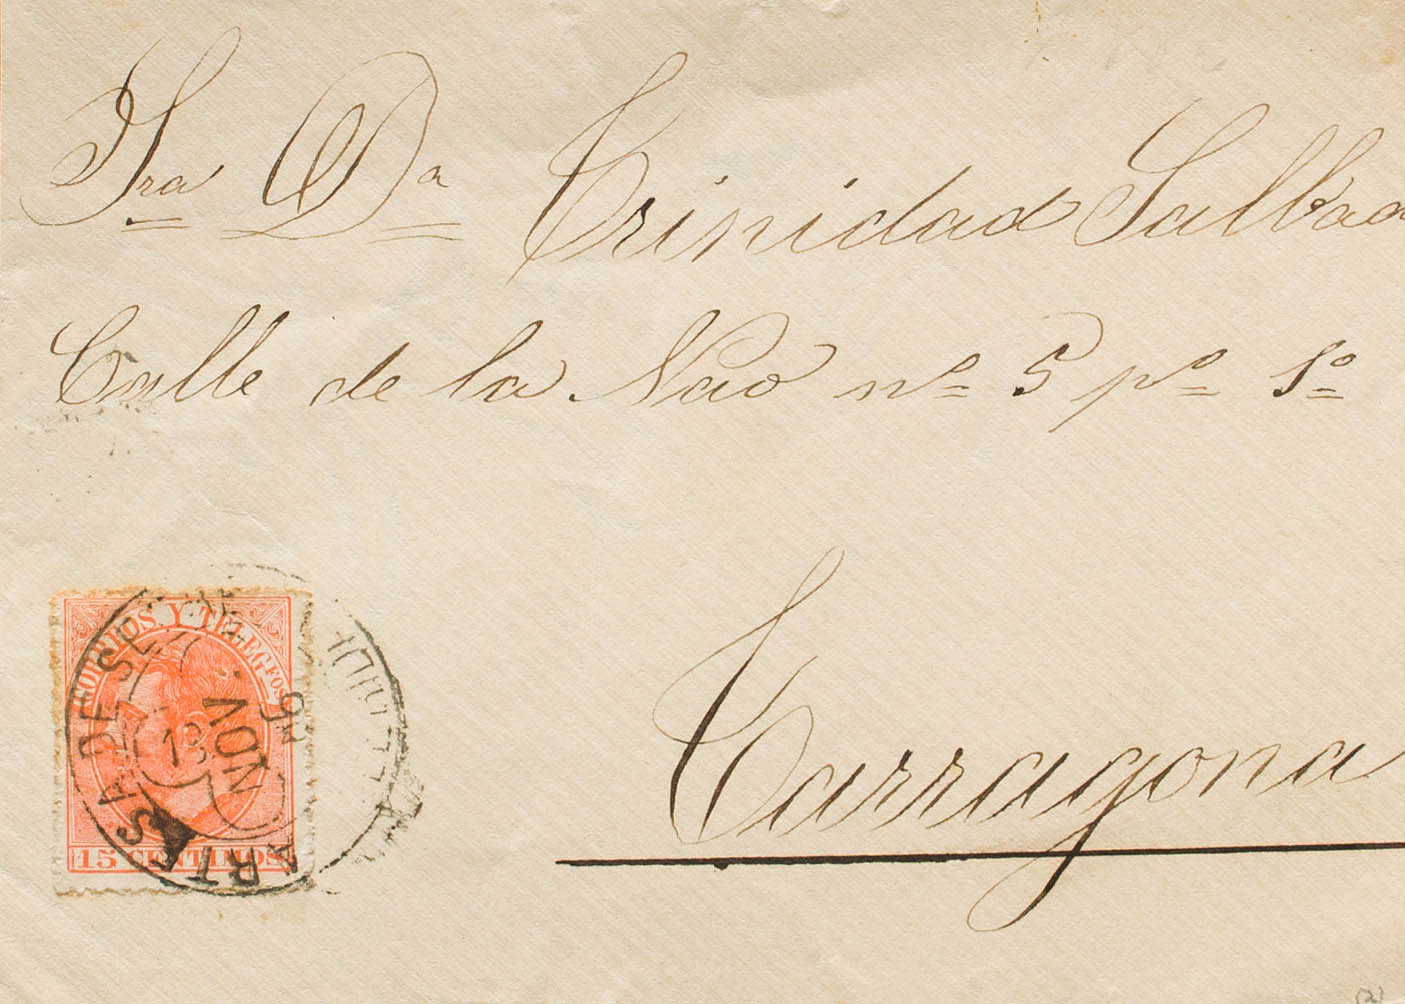 Sra Da Trinidad Salbad
Calle de la Nao nº 5 pº 1º
Tarragona
CORREOS Y TELEGFOS
15 CENTIMOS
NOV